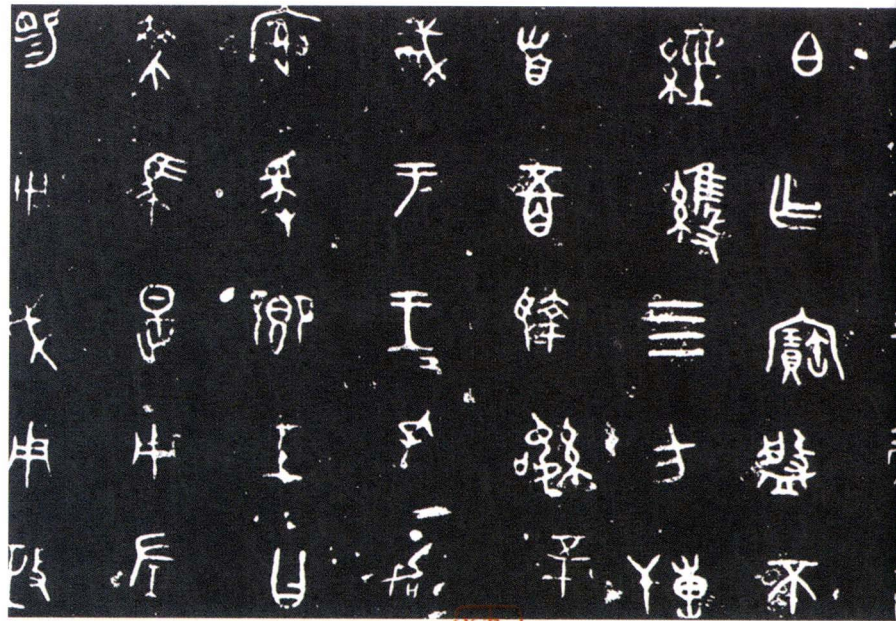 白乍寶盤不
經維四方博
首五百執訊五十
馘于王=孔加
榭爰鄉王曰
乘馬是用左
賜用戉用政